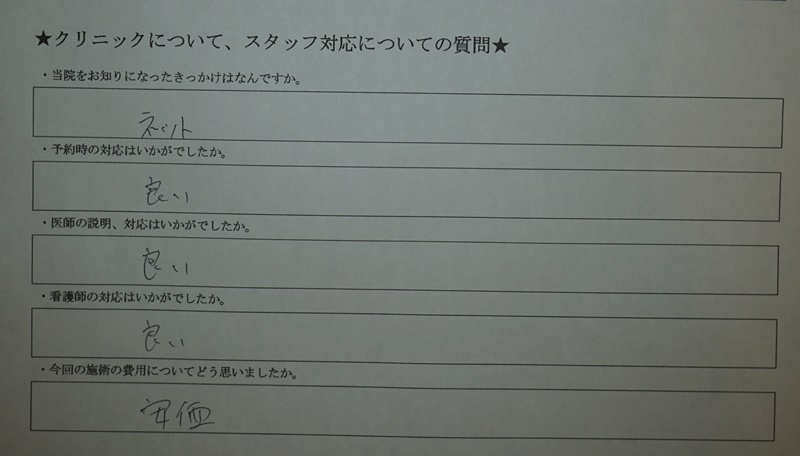 ★クリニックについて、スタッフ対応についての質問★
・当院をお知りになったきっかけはなんですか。
ネット
・予約時の対応はいかがでしたか。
良い
・医師の説明、対応はいかがでしたか。
良い
・看護師の対応はいかがでしたか。
良い
・今回の施術の費用についてどう思いましたか。
安価